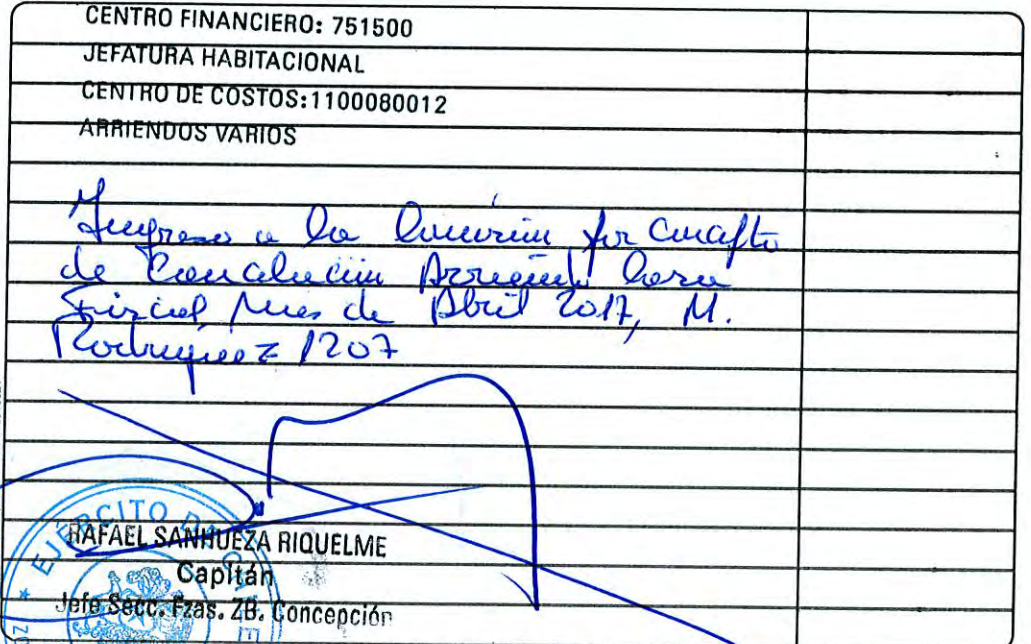 CENTRO FINANCIERO: 751500
JEFATURA HABITACIONAL
CENTRO DE COSTOS:1100080012
ARRIENDOS VARIOS
Ingreso a la por
de Arriendo Casa
Fiscal, Mes de Abril 2017, M.
Rodriguez 1207
EJÉRCITO DE
RAFAEL SANHUEZA RIQUELME
Capitán
Jefe Secc. Fzas. ZB. Concepción